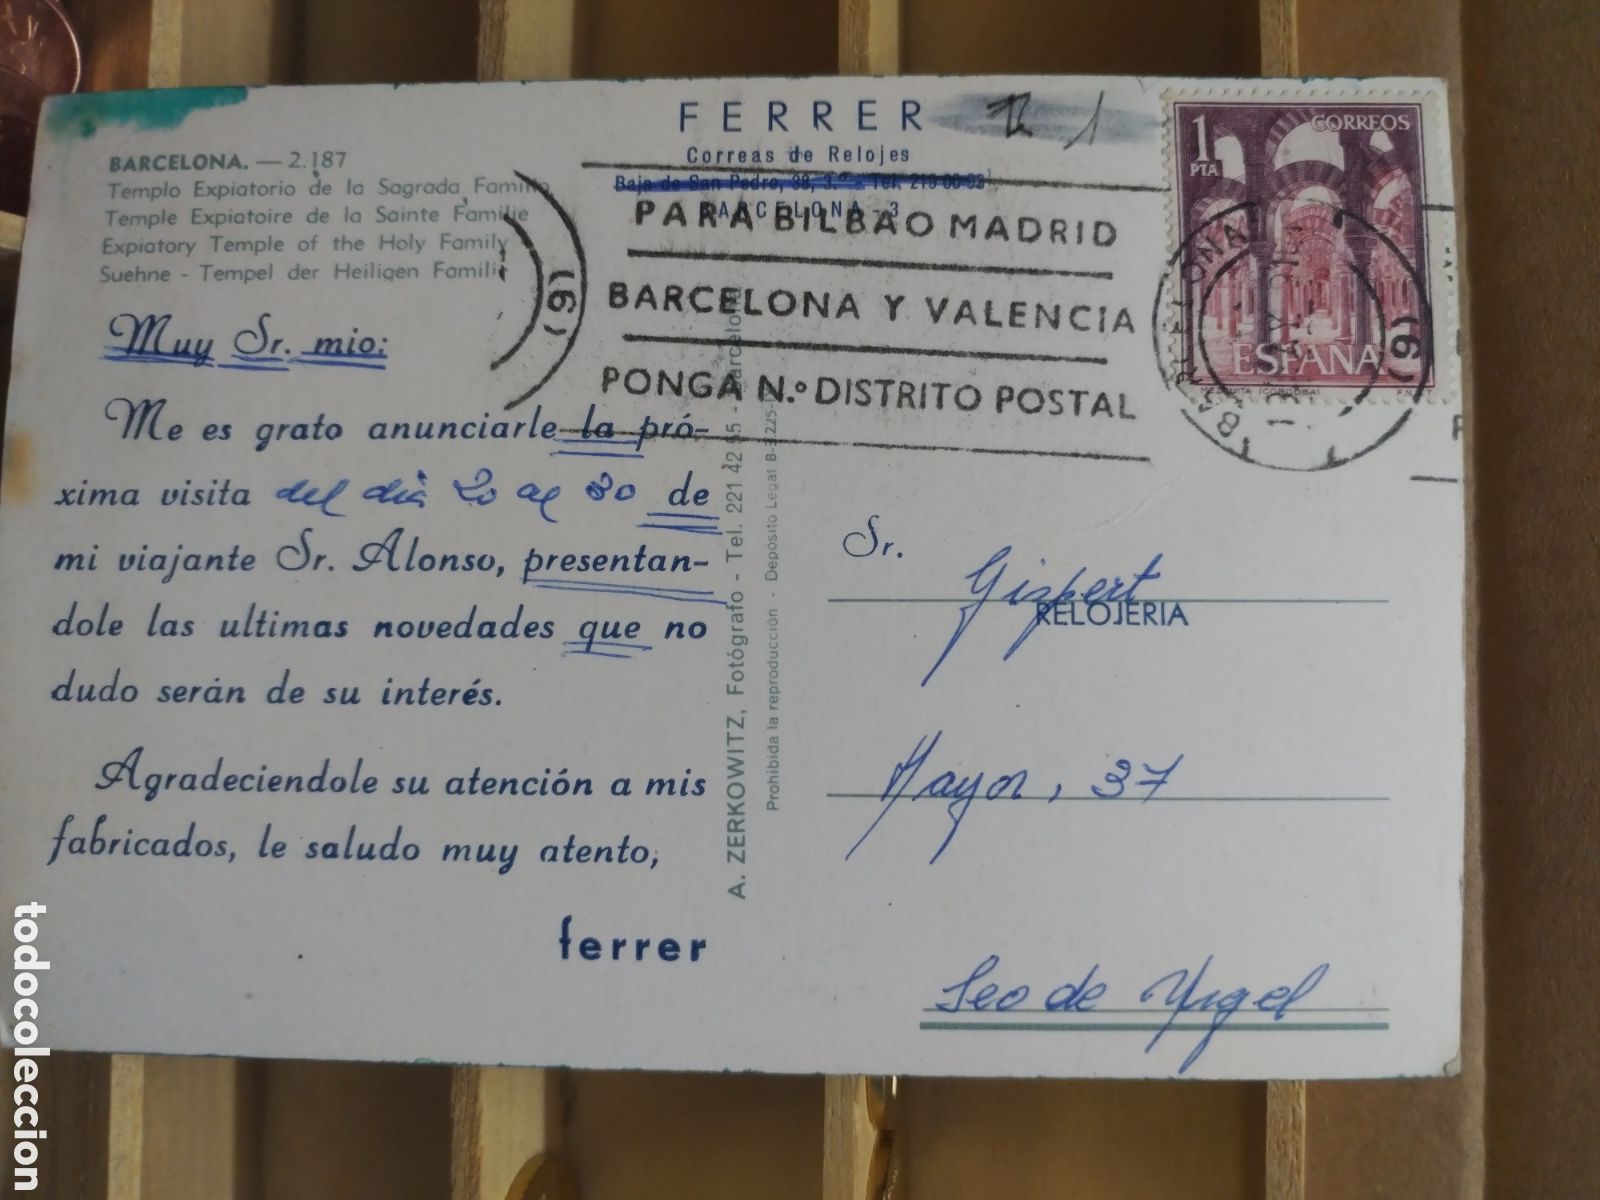 FERRER
Correas de Relojes
Baja de San Pedro, 38, 3.º - Tel. 219 00 93
BARCELONA - 3
BARCELONA. — 2.187
Templo Expiatorio de la Sagrada Familia
Temple Expiatoire de la Sainte Familie
Expiatory Temple of the Holy Family
Suehne - Tempel der Heiligen Famili
Muy Sr. mio:
Me es grato anunciarle la pró-
xima visita del dia 20 al 30 de
mi viajante Sr. Alonso, presentan-
dole las ultimas novedades que no
dudo serán de su interés.
Agradeciendole su atención a mis
fabricados, le saludo muy atento,
ferrer
A. ZERKOWITZ, Fotógrafo - Tel. 221 42 55 - Barcelona
Prohibida la reproducción - Depósito Legal B-3.225-
(6)
PARA BILBAO MADRID
BARCELONA Y VALENCIA
PONGA N.º DISTRITO POSTAL
1
PTA
CORREOS
ESPAÑA
MEZQUITA (CORDOBA)
F.N.M.T
BARCELONA
(6)
Sr. Gispert
RELOJERIA
Mayor, 37
Seo de Urgel
todocoleccion